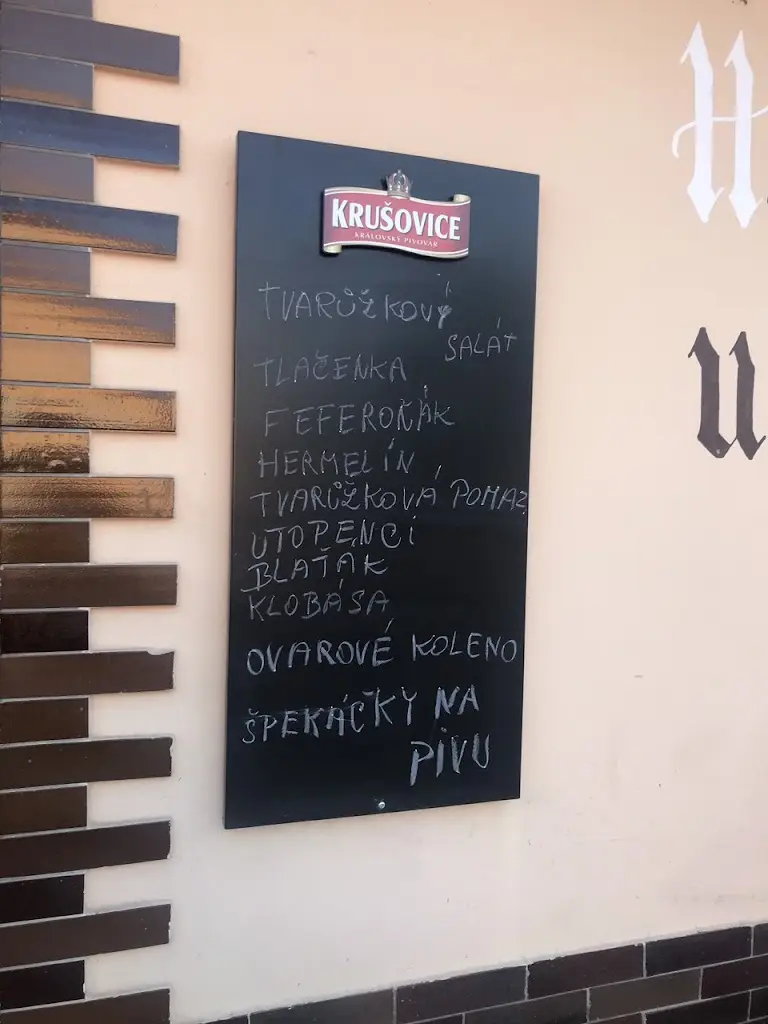 KRUŠOVICE
KRÁLOVSKÝ PIVOVAR
TVARŮŽKOVÝ
SALÁT
TLAČENKA
FEFEROŇÁK
HERMELÍN
TVARŮŽKOVÁ POMAZ
UTOPENCI
BLAŤÁK
KLOBÁSA
OVAROVÉ KOLENO
ŠPEKÁČKY NA
PIVU